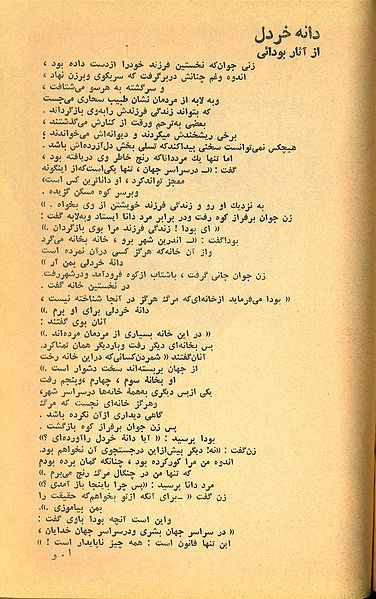 دانه خردل
از آثار بودائی
زنی جوان‌که نخستین فرزند خودرا ازدست داده بود ،
اندوه وغم چنانش دربرگرفت که سربکوی وبرزن نهاد ،
و سرگشته به هرسو می‌شتافت ،
وبه لابه از مردمان نشان طبیب سحاری می‌جست
که بتواند زندگی فرزندش رابه‌وی بازگرداند .
بعضی به‌ترحم ورقت از کنارش می‌گذشتند ،
برخی ریشخندش میکردند و دیوانه‌اش می‌خواندند ،
هیچکس نمی‌توانست سخنی پیداکندکه تسلی بخش دل‌آزرده‌اش باشد .
اما تنها یك مرددانا‌که رنج خاطر وی دریافته بود ،
گفت : «ـ درسراسر جهان ، تنها یکی‌است‌که‌از اینگونه
معجز تواندکرد ، او داناترین کس است،
وبرسر کوه مسکن گزیده .
به نزدیك او رو و زندگی فرزند خویشتن از وی بخواه . »
زن جوان برفراز کوه رفت ودر برابر مرد دانا ایستاد وبه‌لابه گفت :
« ای بودا ! زندگی فرزند مرا بوی بازگردان . »
بوداگفت : «ـ اندرین شهر برو ، خانه بخانه می‌گرد
واز آن خانه‌که هرگز کسی درآن نمرده است
دانهٔ خردلی بمن آر »
زن جوان جانی گرفت ، باشتاب ازکوه فرودآمد ودرشهررفت.
در نخستین خانه گفت .
« بودا می‌فرماید ازخانه‌ای‌که مرگ هرگز در آنجا شناخته نیست ،
دانهٔ خردلی برای او برم . »
آنان بوی گفتند :
« در این خانه بسیاری از مردمان مرده‌اند . »
پس بخانه‌ای دیگر رفت وباردیگر همان تمناکرد.
آنان‌گفتند « شمردن‌کسانی‌که دراین خانه رخت
از جهان بربسته‌اند سخت دشوار است . »
او بخانهٔ سوم ، چهارم ،وپنجم رفت
یکی ازپس دیگری به‌همهٔ خانه‌ها درسراسر شهر،
وهرگز خانه‌ای نجست که مرگ
گاهی دیداری ازآن نکرده باشد .
پس زن جوان برفراز کوه بازگشت .
بودا پرسید : « آیا دانهٔ خردل راآورده‌ای ؟»
زن‌گفت: «نه! دیگر پیش‌ازاین درجستجوی آن نخواهم بود.
اندوه من مرا کورکرده بود ، چنانکه گمان برده بودم
که تنها من در چنگال مرگ رنج می‌برم . »
مرد دانا پرسید : «پس چرا باینجا باز آمدی ؟»
زن گفت « ـ برای آنکه ازتو بخواهم‌که حقیقت را
بمن بیاموزی . »
واین است آنچه بودا باوی گفت :
« در سراسر جهان بشری ودرسراسر جهان خدایان ،
این تنها قانون است : همه چیز ناپایدار است ! »
ا . و